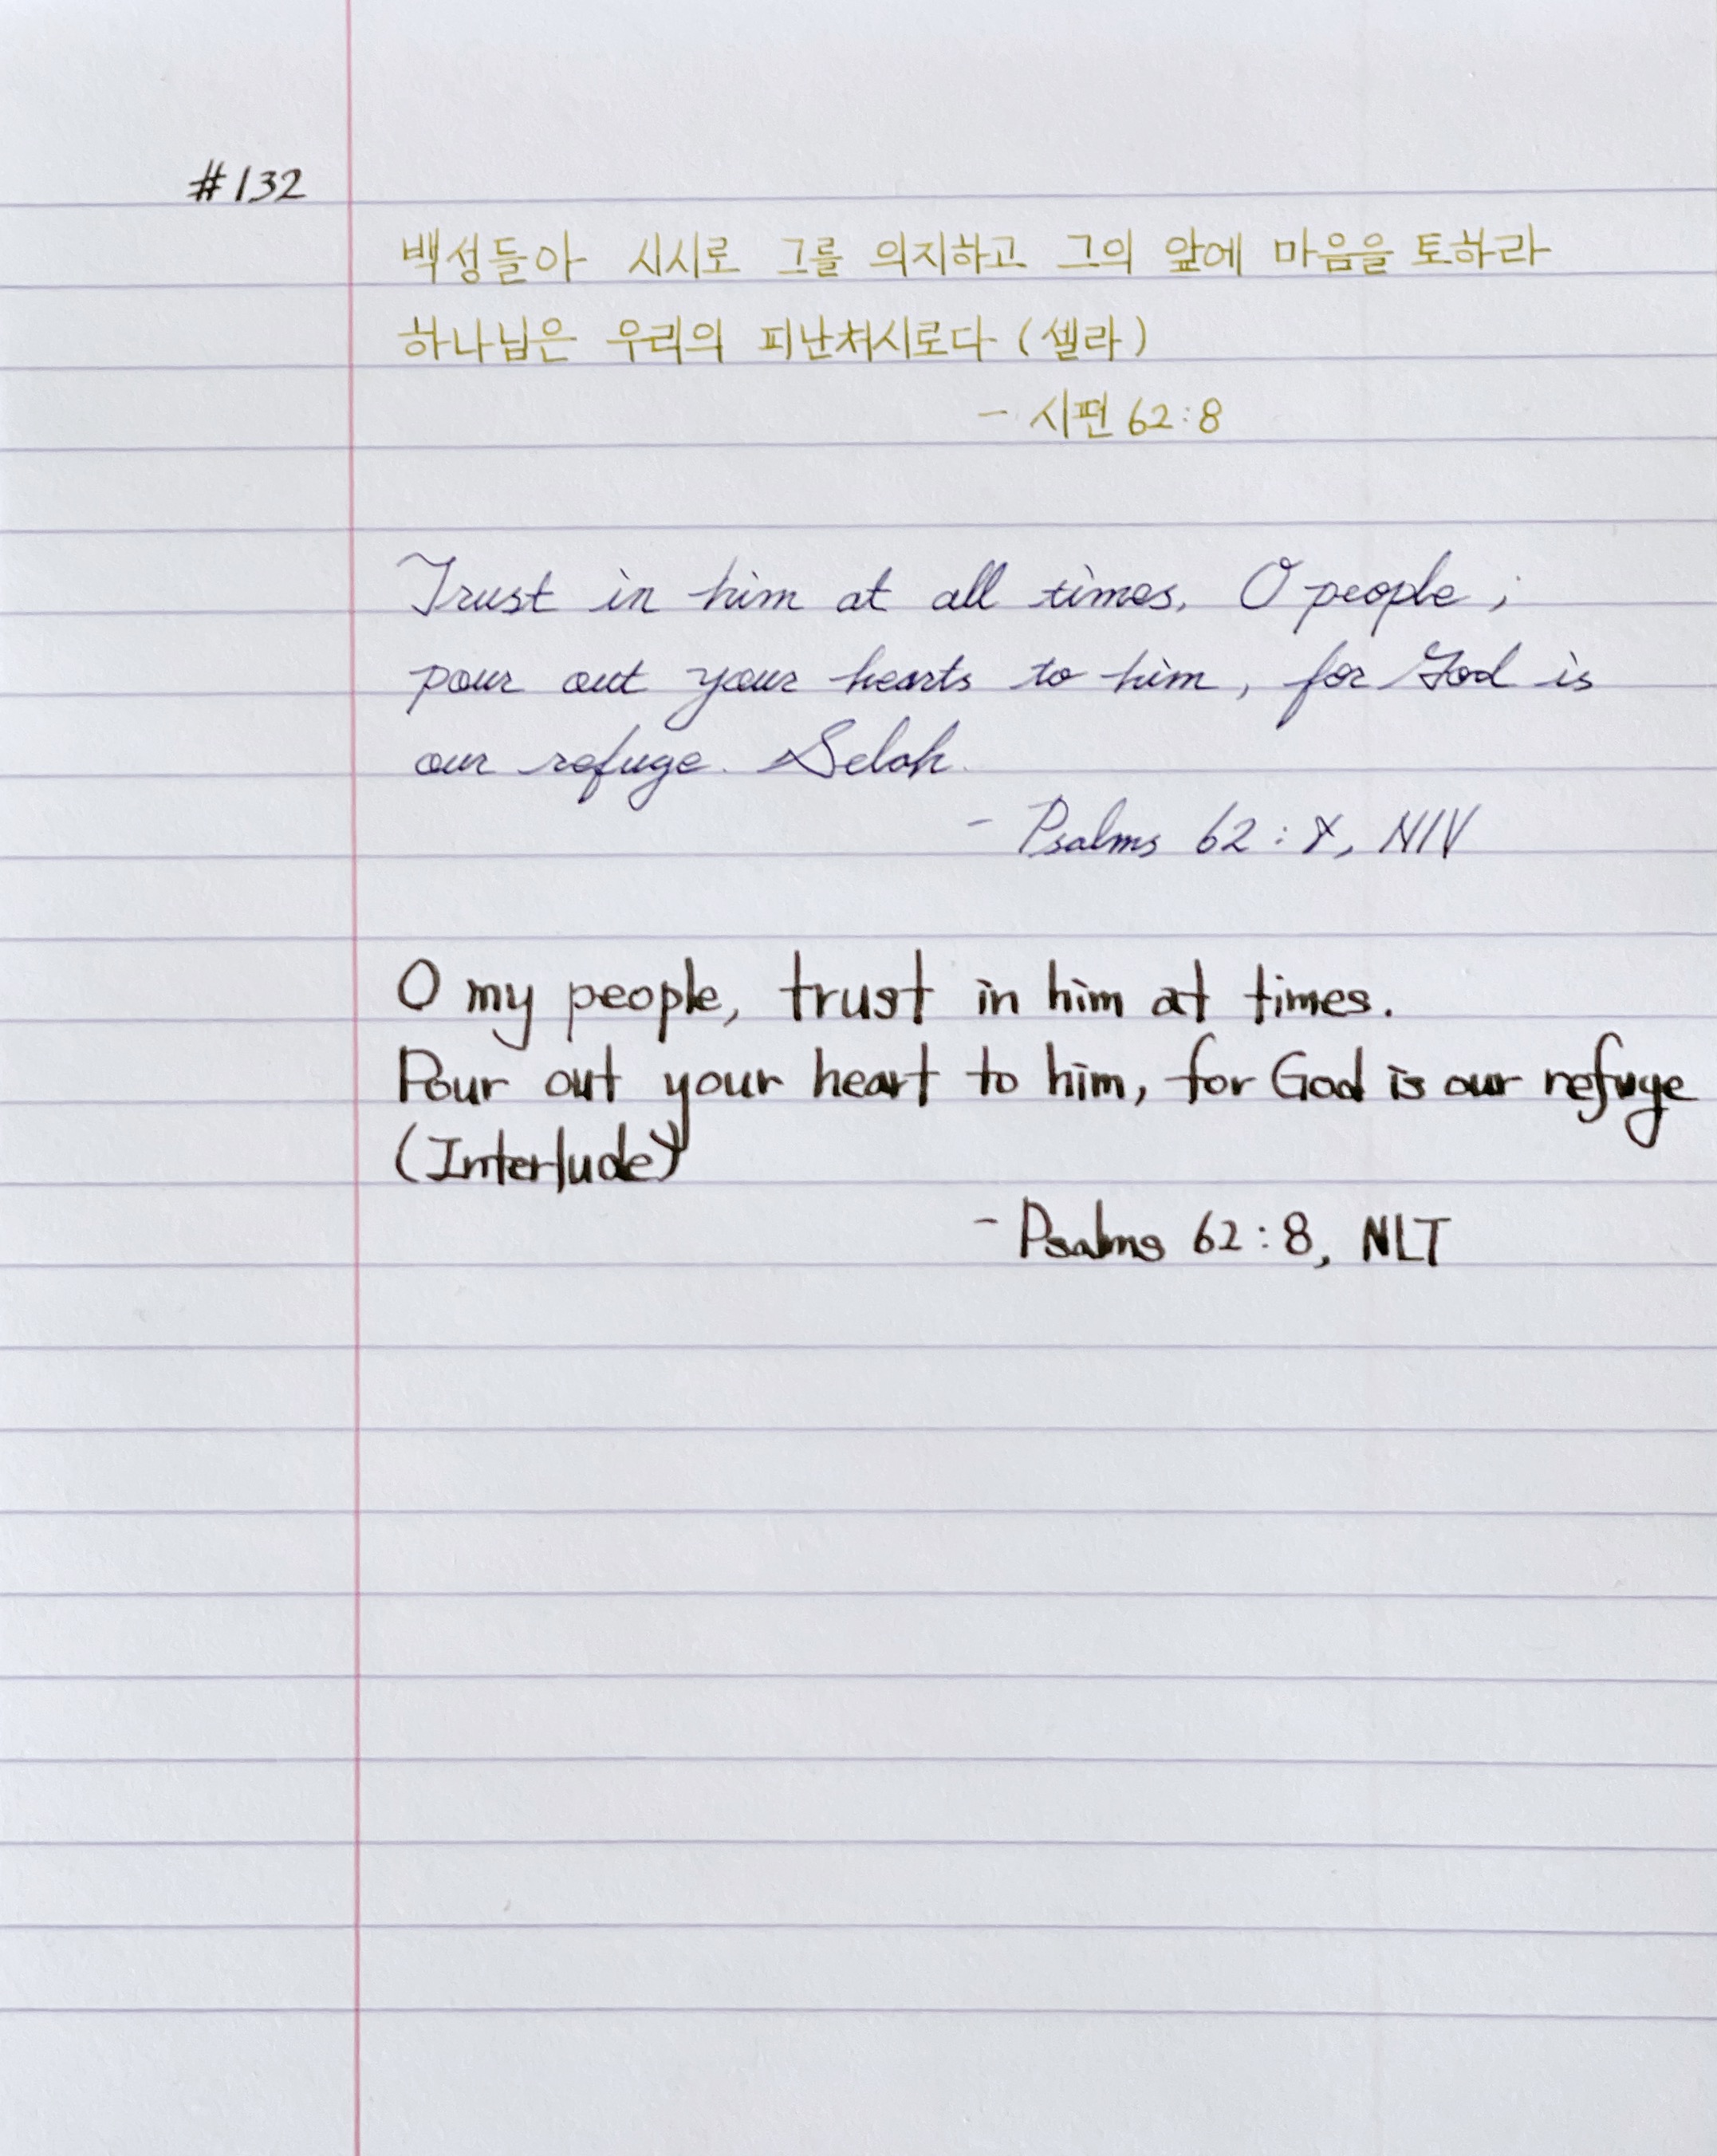 #132
백성들아 시시로 그를 의지하고 그의 앞에 마음을 토하라
하나님은 우리의 피난처시로다 (셀라)
- 시편 62:8
Trust in him at all times, O people;
pour out your hearts to him, for God is
our refuge. Selah.
- Psalms 62:8, NIV
O my people, trust in him at times.
Pour out your heart to him, for God is our refuge
(Interlude)
- Psalms 62:8, NLT